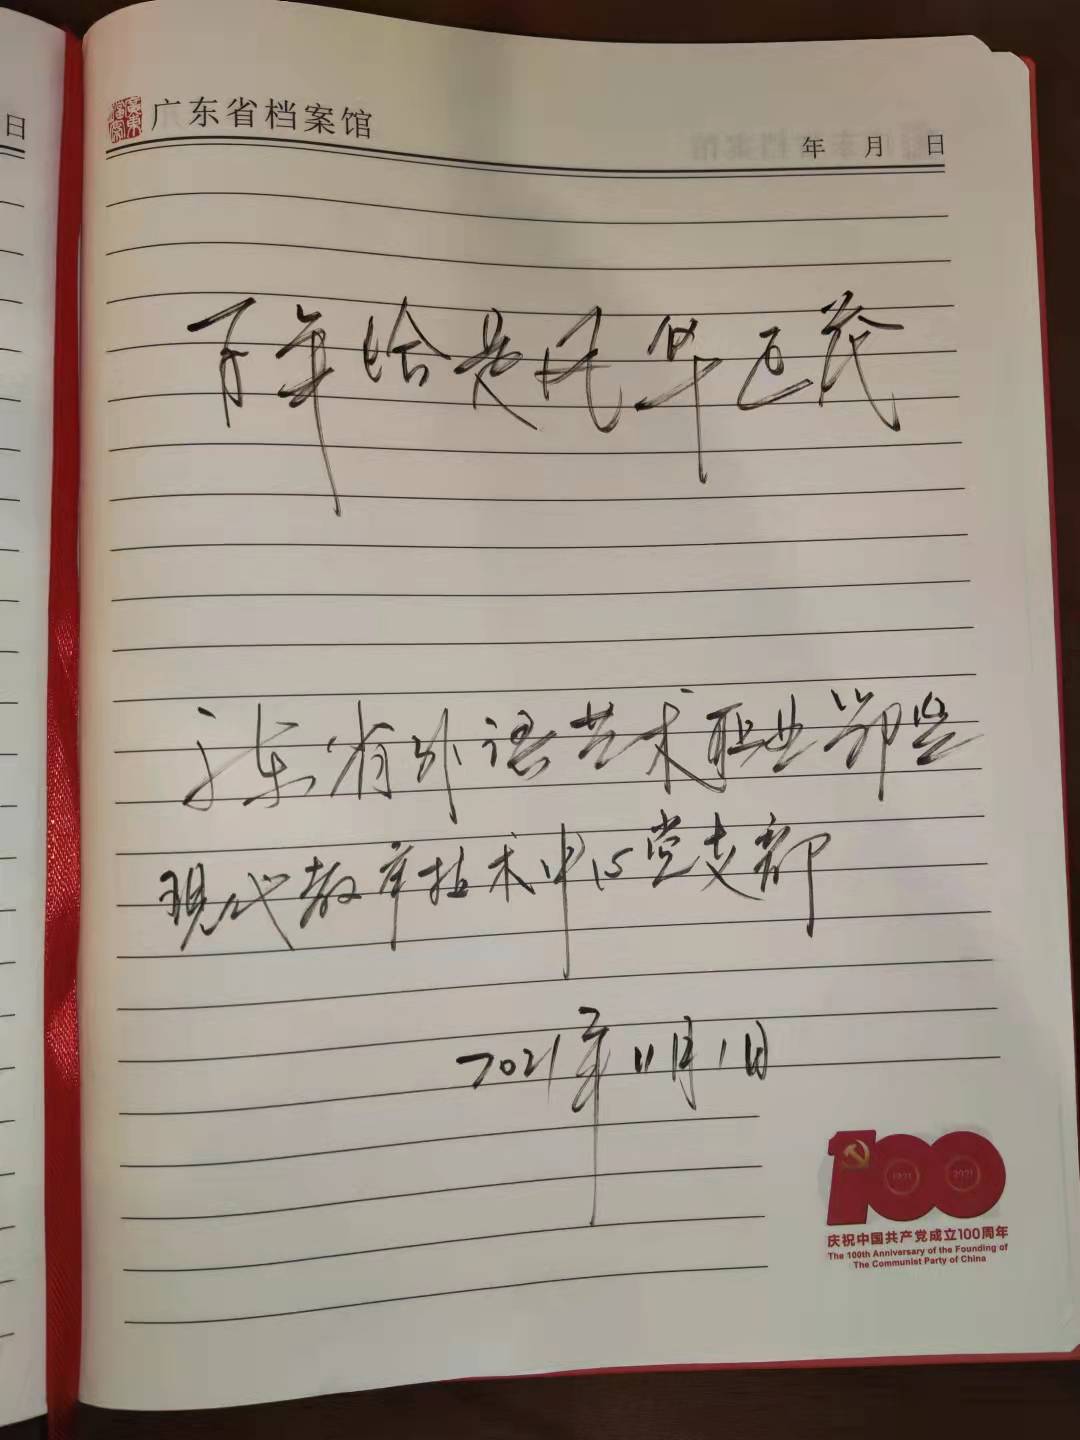 日
广东省档案馆
年 月 日
百年恰是风华正茂
广东省外语艺术职业学院
现代教育技术中心党支部
2021年11月1日
100
1921 2021
庆祝中国共产党成立100周年
The 100th Anniversary of the Founding of
The Communist Party of China